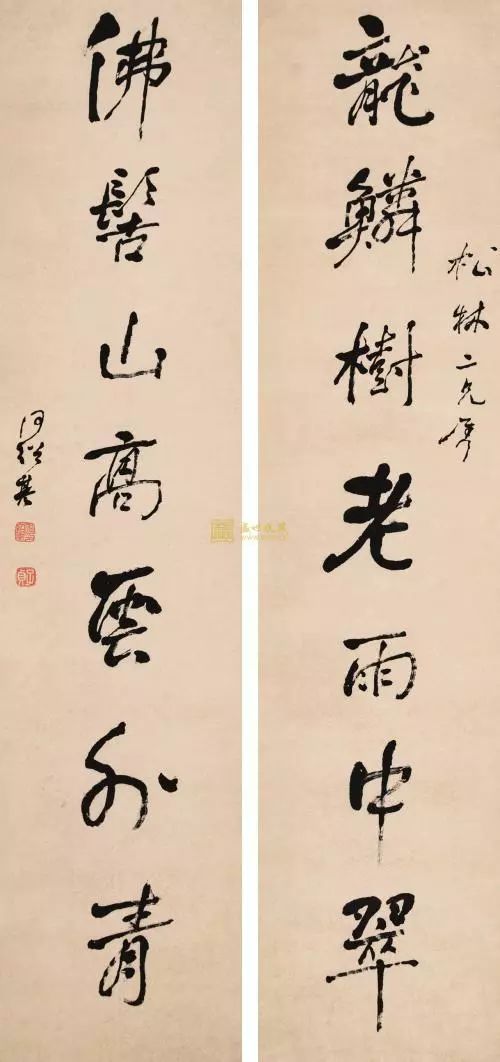 龍鱗樹老雨中翠
松林二兄屬
佛髻山高雲外青
何紹基